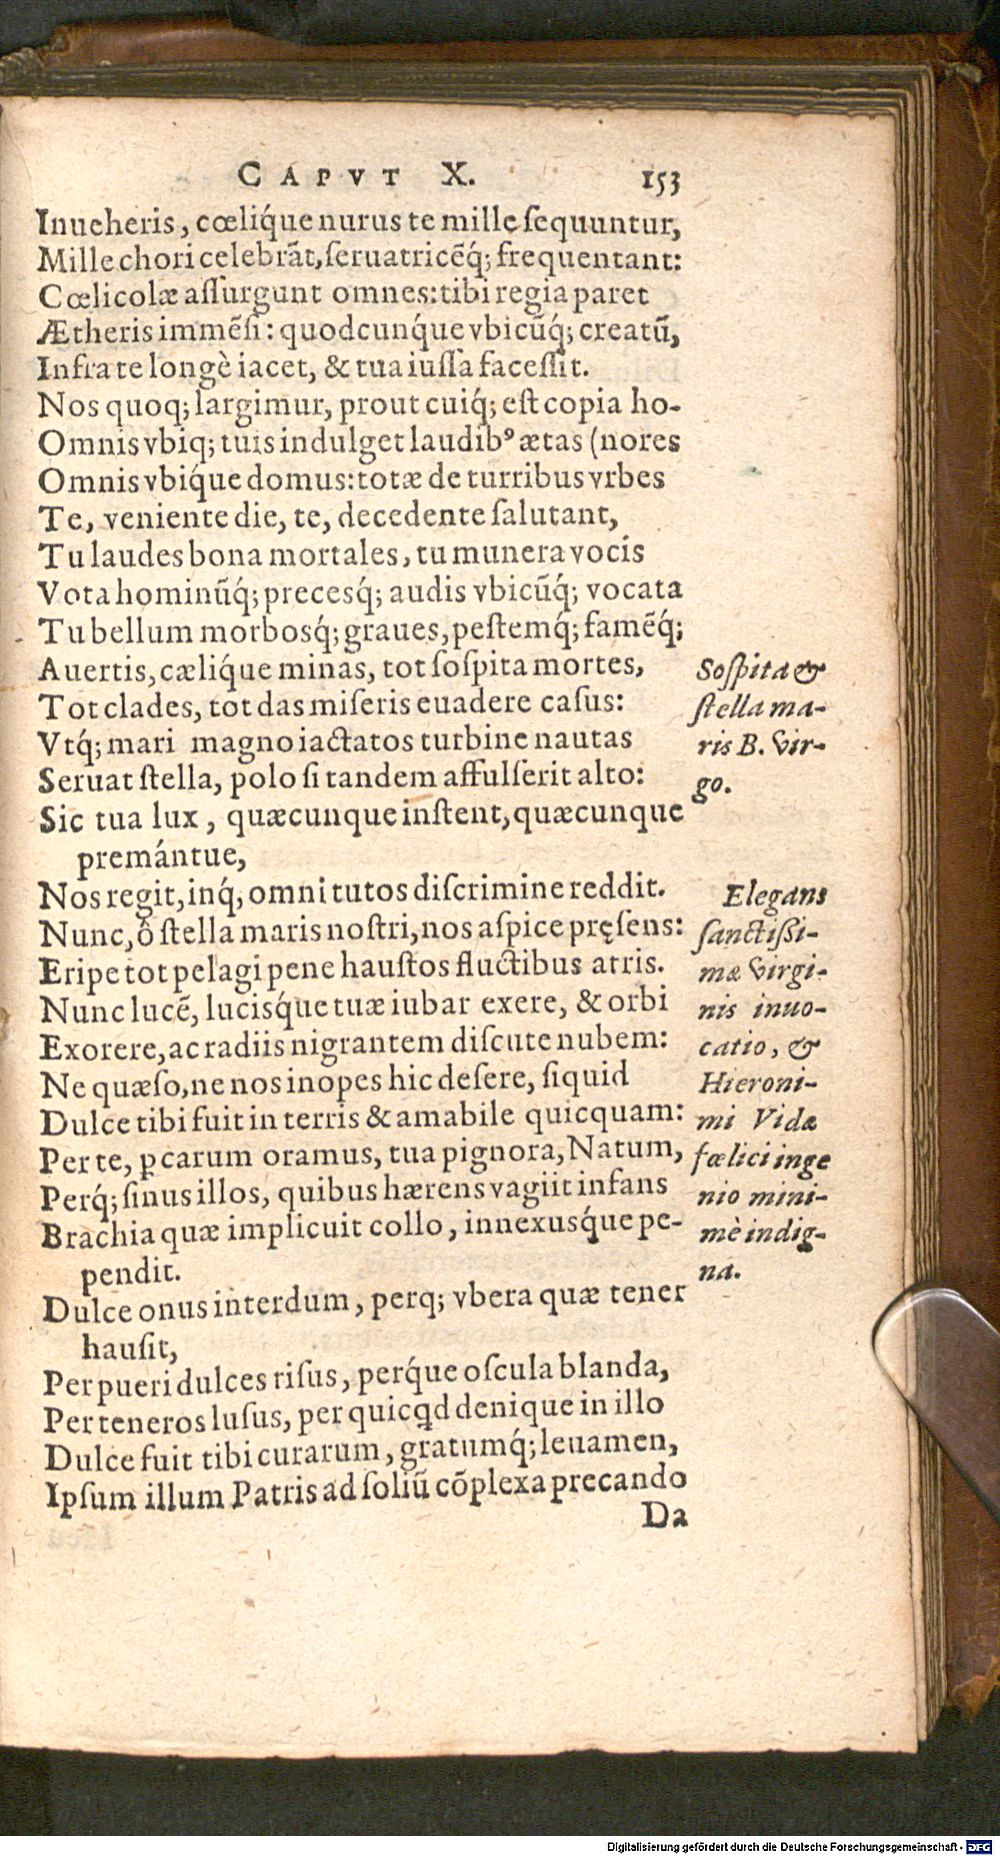 CAPVT X. 153
Inueheris, cœliq́ue nurus te mille ſequuntur,
Mille chori celebrãt, ſeruatricẽq́; frequentant:
Cœlicolæ aſſurgunt omnes: tibi regia paret
Ætheris immẽſi: quodcunq́ue vbicũq́; creatũ,
Infra te longè iacet, & tua iuſſa faceſſit.
Nos quoq; largimur, prout cuiq́; eſt copia ho-
Omnis vbiq; tuis indulget laudibꝰ ætas (nores
Omnis vbiq́ue domus: totæ de turribus vrbes
Te, veniente die, te, decedente ſalutant,
Tu laudes bona mortales, tu munera vocis
Vota hominũq́; precesq́; audis vbicũq́; vocata
Tu bellum morbosq́; graues, peſtemq́; famẽq́;
Auertis, cæliq́ue minas, tot ſoſpita mortes,
Tot clades, tot das miſeris euadere caſus:
Vtq́; mari magno iactatos turbine nautas
Seruat ſtella, polo ſi tandem affulſerit alto:
Sic tua lux, quæcunque inſtent, quæcunque
premántue,
Nos regit, inq́, omni tutos diſcrimine reddit.
Nunc, ô ſtella maris noſtri, nos aſpice pręſens:
Eripe tot pelagi pene hauſtos fluctibus atris.
Nunc lucẽ, lucisq́ue tuæ iubar exere, & orbi
Exorere, ac radiis nigrantem diſcute nubem:
Ne quæſo, ne nos inopes hic deſere, ſiquid
Dulce tibi fuit in terris & amabile quicquam:
Per te, ꝑ carum oramus, tua pignora, Natum,
Perq́; ſinus illos, quibus hærens vagiit infans
Brachia quæ implicuit collo, innexusq́ue pe-
pendit.
Dulce onus interdum, perq; vbera quæ tener
hauſit,
Per pueri dulces riſus, perq́ue oſcula blanda,
Per teneros luſus, per quicꝗd denique in illo
Dulce fuit tibi curarum, gratumq́; leuamen,
Ipſum illum Patris ad ſoliũ cõplexa precando
Da
Soſpita &
ſtella ma-
ris B. Vir-
go.
Elegans
ſanctiſſi-
mæ Virgi-
nis inuo-
catio, &
Hieroni-
mi Vidæ
fœlici inge
nio mini-
mè indig-
na.
Digitalisierung gefördert durch die Deutsche Forschungsgemeinschaft - DFG